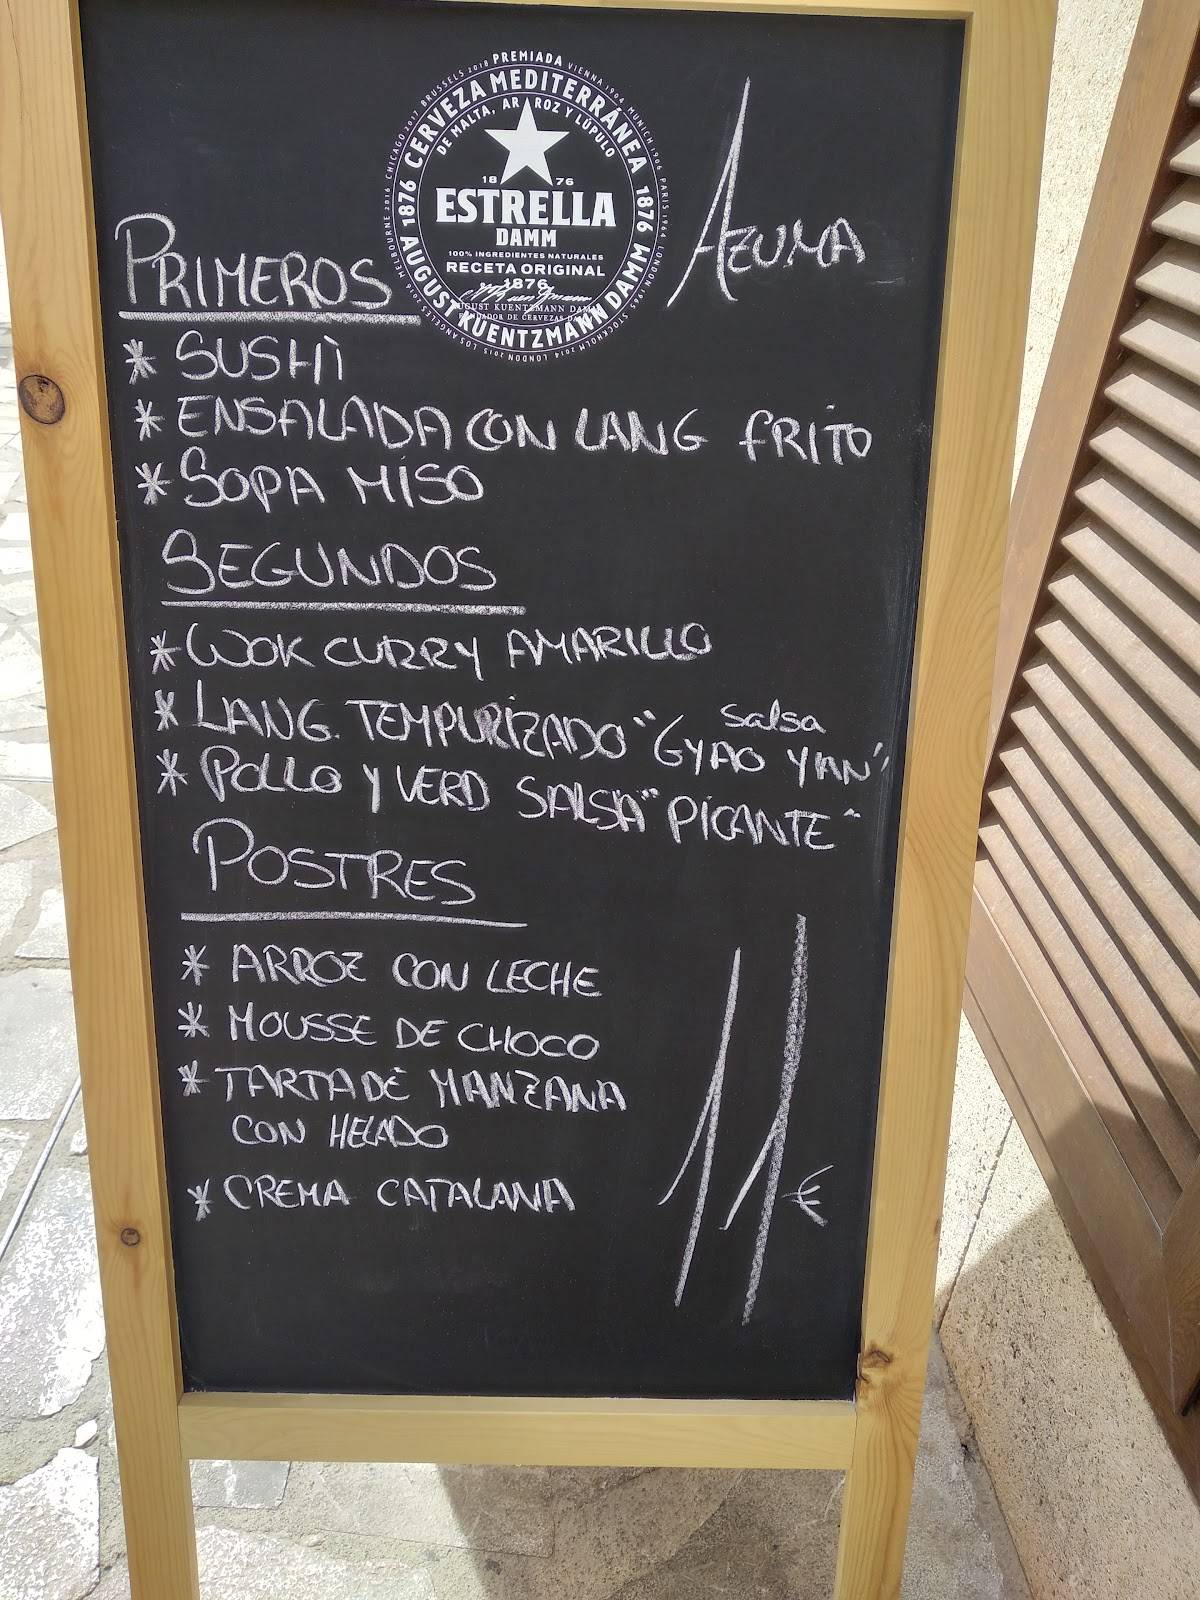 PREMIADA VIENNA 1904 MUNICH 1906 PARIS 1964 LONDON 1965 STOCKHOLM 2014 LONDON 2015 LOS ANGELES 2016 MELBOURNE 2016 CHICAGO 2017 BRUSSELS 2018
1876 CERVEZA MEDITERRÁNEA 1876
DE MALTA, ARROZ Y LÚPULO
18 76
ESTRELLA
DAMM
100% INGREDIENTES NATURALES
RECETA ORIGINAL
1876
AUGUST KUENTZMANN DAMM
FUNDADOR DE CERVEZAS DAMM
AUGUST KUENTZMANN DAMM
AZUMA
PRIMEROS
* SUSHI
* ENSALADA CON LANG FRITO
* SOPA MISO
SEGUNDOS
* WOK CURRY AMARILLO
* LANG. TEMPURIZADO "GYAO YIAN"
salsa
* POLLO Y VERD SALSA "PICANTE"
POSTRES
* ARROZ CON LECHE
* MOUSSE DE CHOCO
* TARTA DE MANZANA
CON HELADO
* CREMA CATALANA
11€